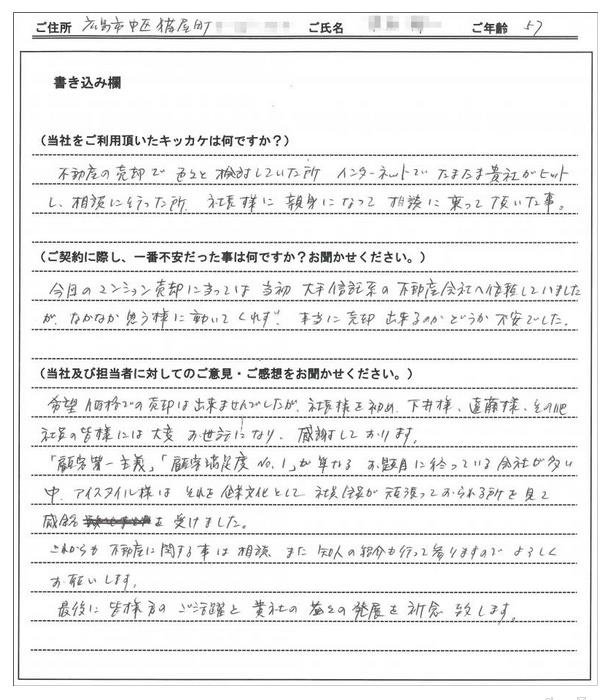 ご住所 広島市中区猫屋町 ご氏名 ご年齢 57
書き込み欄
(当社をご利用頂いたキッカケは何ですか?)
不動産の売却で 色々と検討していた所 インターネットで たまたま貴社がヒット
し、相談に行った所、社長様に親身になって相談に乗って頂いた事。
(ご契約に際し、一番不安だった事は何ですか?お聞かせください。)
今回のマンション売却に当っては 当初 大手信託系の不動産会社へ依頼していました
が、なかなか思う様に動いてくれず、本当に売却出来るのかどうか不安でした。
(当社及び担当者に対してのご意見・ご感想をお聞かせください。)
希望価格での売却は出来ませんでしたが、社長様を初め、下井様、遠藤様、その他
社員の皆様には大変お世話になり、感謝しております。
「顧客第一主義」「顧客満足度No.1」が単なるお題目に終っている会社が多い
中、アイスタイル様は それを企業文化として 社員全員が頑張っておられる所を見て
感銘を受けました。
これからも不動産に関する事は相談、また知人の紹介も行って参りますのでよろしく
お願いします。
最後に皆様方のご活躍と貴社の益々の発展を祈念致します。